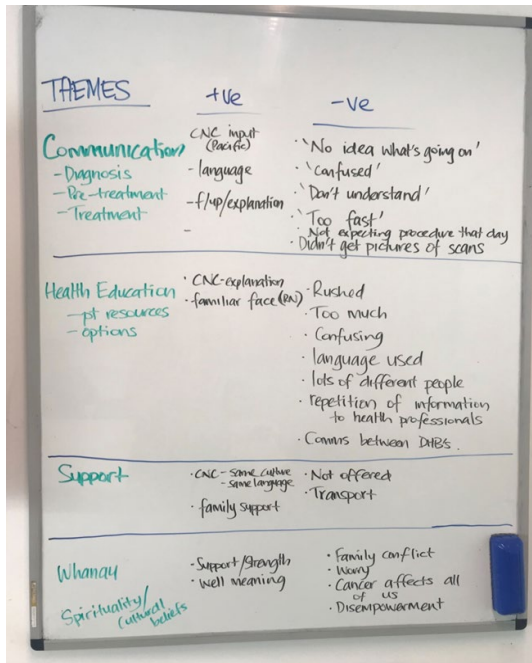 THEMES +ve -ve
Communication
- Diagnosis
- Pre-treatment
- Treatment
CNC input
(Pacific)
- language
- f/up/explanation
-
· 'No idea what's going on'
· 'Confused'
· 'Don't understand'
· 'Too fast'
· Not expecting procedure that day
· Didn't get pictures of scans
Health Education
- pt resources
- options
· CNC-explanation
· familiar face (RN)
· Rushed
· Too much
· Confusing
· language used
· lots of different people
· repetition of information
to health professionals
· Comms between DHB's.
Support
· CNC - same culture
- same language
· family support
· Not offered
· Transport
Whanau
Spirituality/
cultural
beliefs
· Support/strength
· Well meaning
· Family conflict
· Worry
· Cancer affects all
of us
· Disempowerment